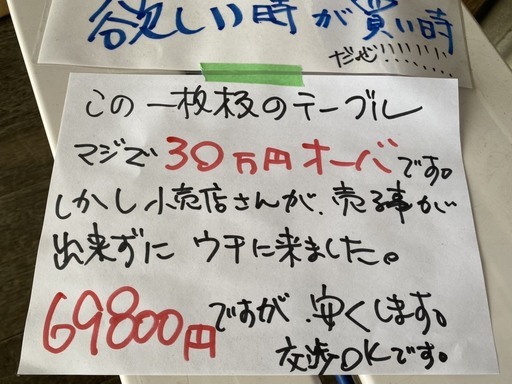 欲しい時が買い時
だぜ!!!!!!!!
この一枚板のテーブル
マジで30万円オーバーです。
しかし小売店さんが、売る事が
出来ずに ウチに来ました。
69800円ですが 安くします。
交渉OKです。